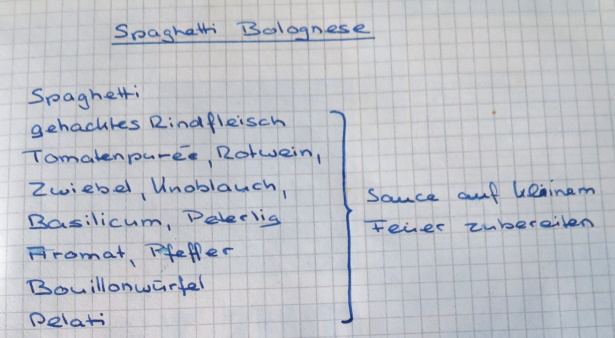 Spaghetti Bolognese
Spaghetti
gehacktes Rindfleisch
Tomatenpurée, Rotwein,
Zwiebel, Knoblauch,
Basilicum, Peterlig
Aromat, Pfeffer
Bouillonwürfel
Pelati
Sauce auf kleinem
Feuer zubereiten